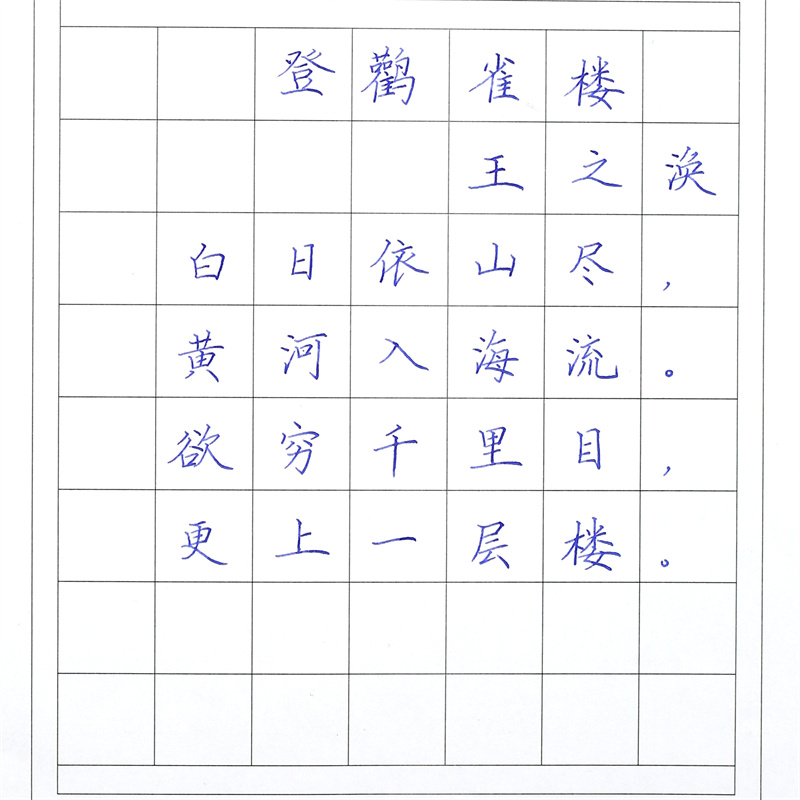 登鸛雀楼
王之涣
白日依山尽，
黄河入海流。
欲穷千里目，
更上一层楼。